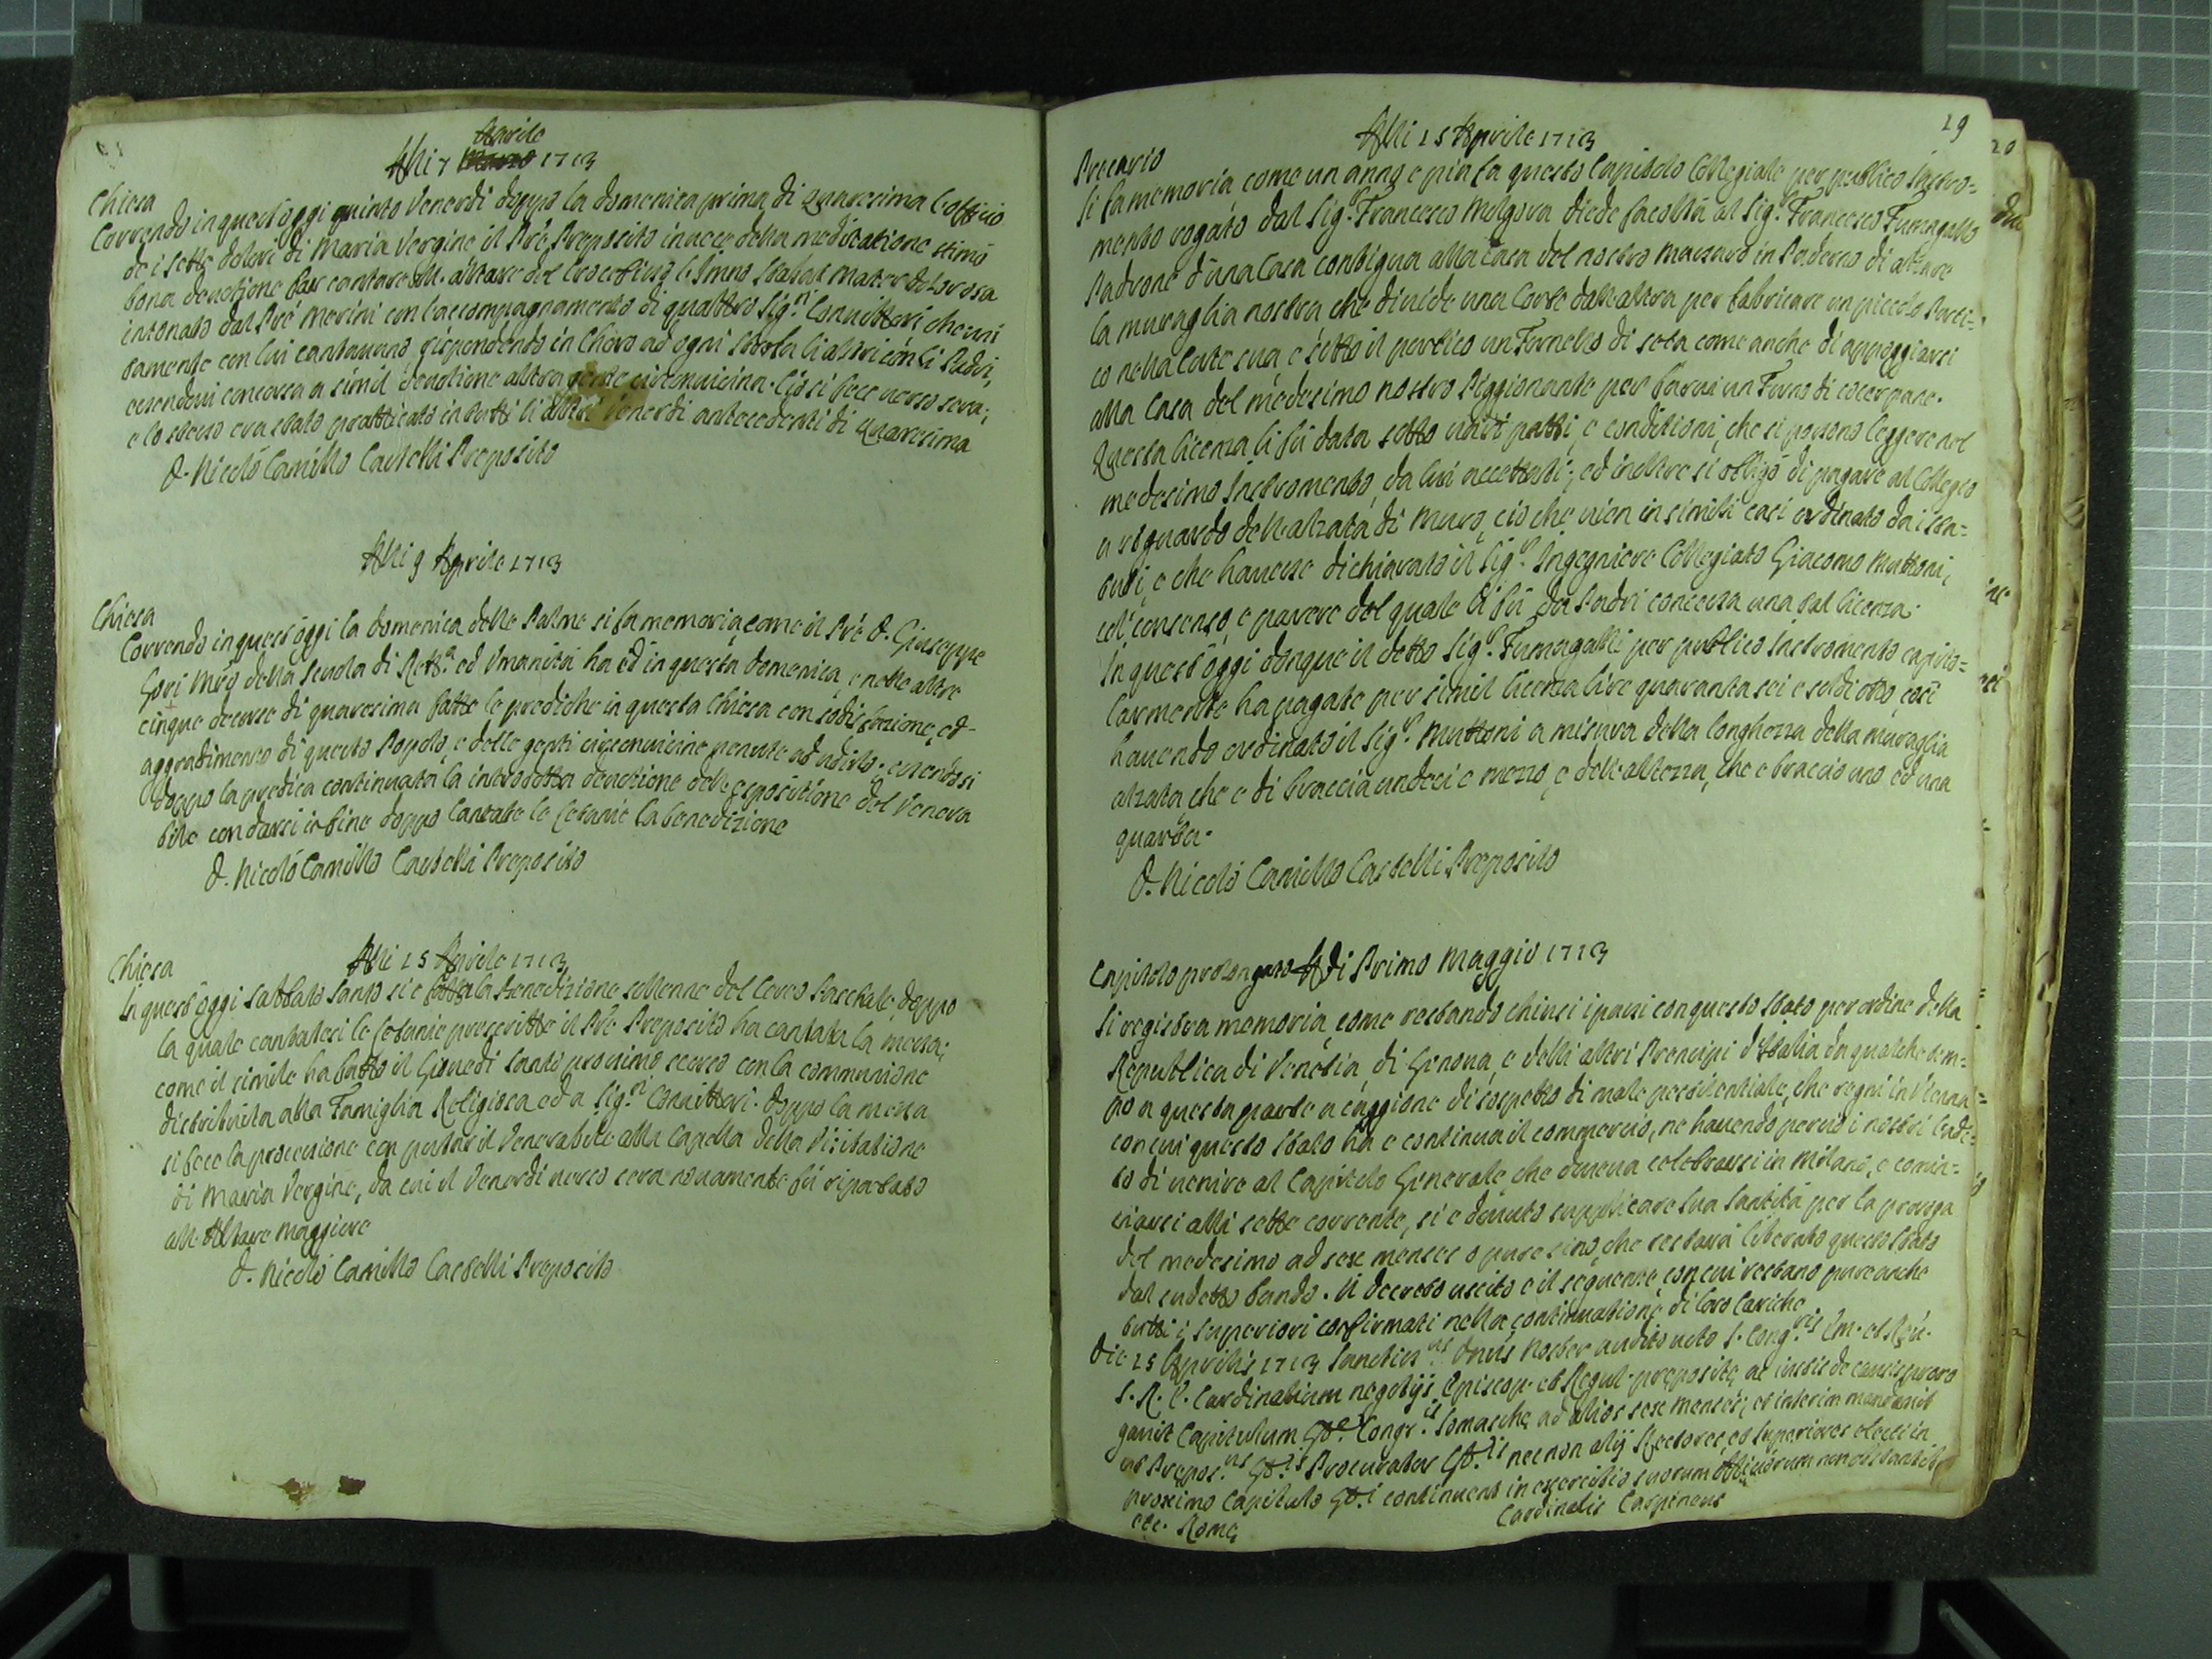 Aprile
Alli 7 Marzo 1713
Chiesa
Correndo in quest'oggi quinto Venerdì doppo la domenica prima di Quaresima l'officio
de i sette dolori di Maria Vergine il Prē Preposito invece della meditatione stimò
bona devotione far cantare all'altare del Crocefisso l'Inno Stabat Mater dolorosa
intonato dal Prē Morini con l'accompagnamento di quattro Sig.ri Convittori che uni
tamente con lui cantavano rispondendo in Choro ad ogni strofa li altri con li Padri,
essendovi concorsa a simil devotione altra gente circonvicina. Ciò si fece verso sera;
e lo stesso era stato pratticato in tutti li altri Venerdì antecedenti di Quaresima
D. Nicolò Camillo Castelli Preposito
Alli 9 Aprile 1713
Chiesa
Correndo in quest'oggi la domenica delle Palme si fa memoria come il Prē D. Giuseppe
Gori Mrō della Scuola di Rett.a ed Umanità ha ed in questa domenica, e nelle altre
cinque decorse di quaresima fatte le prediche in questa Chiesa con sodisfazione, ed
aggradimento di questo Popolo, e delle genti circonvicine venute ad udirlo. essendosi
doppo la predica continuata la introdotta devotione dell'espositione del Venera
bile con darsi in fine doppo cantate le Letanie la benedizione
D. Nicolò Camillo Castelli Preposito
Alli 15 Aprile 1713
Chiesa
In quest'oggi Sabbato Santo si è fatta la Benedizione sollenne del Cereo Paschale, doppo
la quale cantatesi le Letanie prescritte il Prē Preposito ha cantata la messa;
come il simile ha fatto il Giovedì Santo prossimo scorso con la communione
distribuita alla Famiglia Religiosa ed a Sig.ri Convittori. doppo la messa
si fece la processione con portar il Venerabile alla Capella della Visitatione
di Maria Vergine, da cui il Venerdì verso sera novamente fù riportato
all'Altare Maggiore
D. Nicolò Camillo Castelli Preposito
19
Alli 15 Aprile 1713
Precario
Si fa memoria come un anno e più fa questo Capitolo Collegiale per publico Instro=
mento rogato dal Sig.r Francesco Melgova diede facoltà al Sig.r Francesco Fumagallo
Padrone d'una Casa contigua alla Casa del nostro Massaro in Paderno di alzare
la muraglia nostra che divide una Corte dall'altra per fabricare un piccolo Porti=
co nella Corte sua, e sotto il portico un Fornello di seta come anche di appoggiarsi
alla Casa del medesimo nostro Piggionante per farvi un Forno di cocer pane.
Questa licenza li fù data sotto varii patti, e conditioni, che si possono leggere nel
medesimo Instromento, da lui accettati; ed inoltre si obligò di pagare al Collegio
a riguardo dell'alzata di Muro, ciò che vien in simili casi ordinato da i sta=
tuti, e che havesse dichiarato il Sig.r Ingegniere Collegiato Giacomo Muttoni,
col consenso, e parere del quale li fù da Padri concessa una tal licenza.
In quest'oggi donque il detto Sig.r Fumagalli per publico Instromento capito=
larmente ha pagate per simil licenza lire quaranta sei e soldi otto, così
havendo ordinato il Sig.r Muttoni a misura della longhezza della muraglia
alzata, che è di braccia undeci e mezzo, e dell'altezza, che è braccio uno ed una
quarta.
D. Nicolò Camillo Castelli Preposito
Capitolo prolongato Adi Primo Maggio 1713
Si registra memoria, come restando chiusi i passi con questo Stato per ordine della
Republica di Venetia, di Genova, e delli altri Prencipi d'Italia da qualche tem=
po a questa parte a caggione di sospetto di male pestilentiale, che regni in Vienna
con cui questo Stato ha e continua il commercio, ne havendo perciò i nostri l'adi=
to di venire al Capitolo Generale, che doveva celebrarsi in Milano, e comin=
ciarsi alli sette corrente, si è dovuto supplicare Sua Santità per la proroga
del medesimo ad sex menses o pure sino, che restarà liberato questo Stato
dal sudetto bando. Il decreto uscito è il seguente con cui restano pure anche
tutti i Superiori confirmati nella continuatione di loro Cariche
Die 15 Aprilis 1713 Sanctiss.us Dnūs Noster audito voto S. Cong.nis Em. et Rev.
S. R. E. Cardinalium negotijs Episcop. et Regul. preposite ac iustis de causis proro
gavit Capitulum G̃n̄e Congr.is Somasche ad alios sex menses; et interim mandavit
ut Prepos.us G̃n̄lis Procurator G̃n̄lis nec non alij Rectores, et Superiores electi in
proximo Capitulo G̃n̄li continuent in exercitio suorum officiorum non obstantib.
etc. Romę
Cardinalis Carpineus